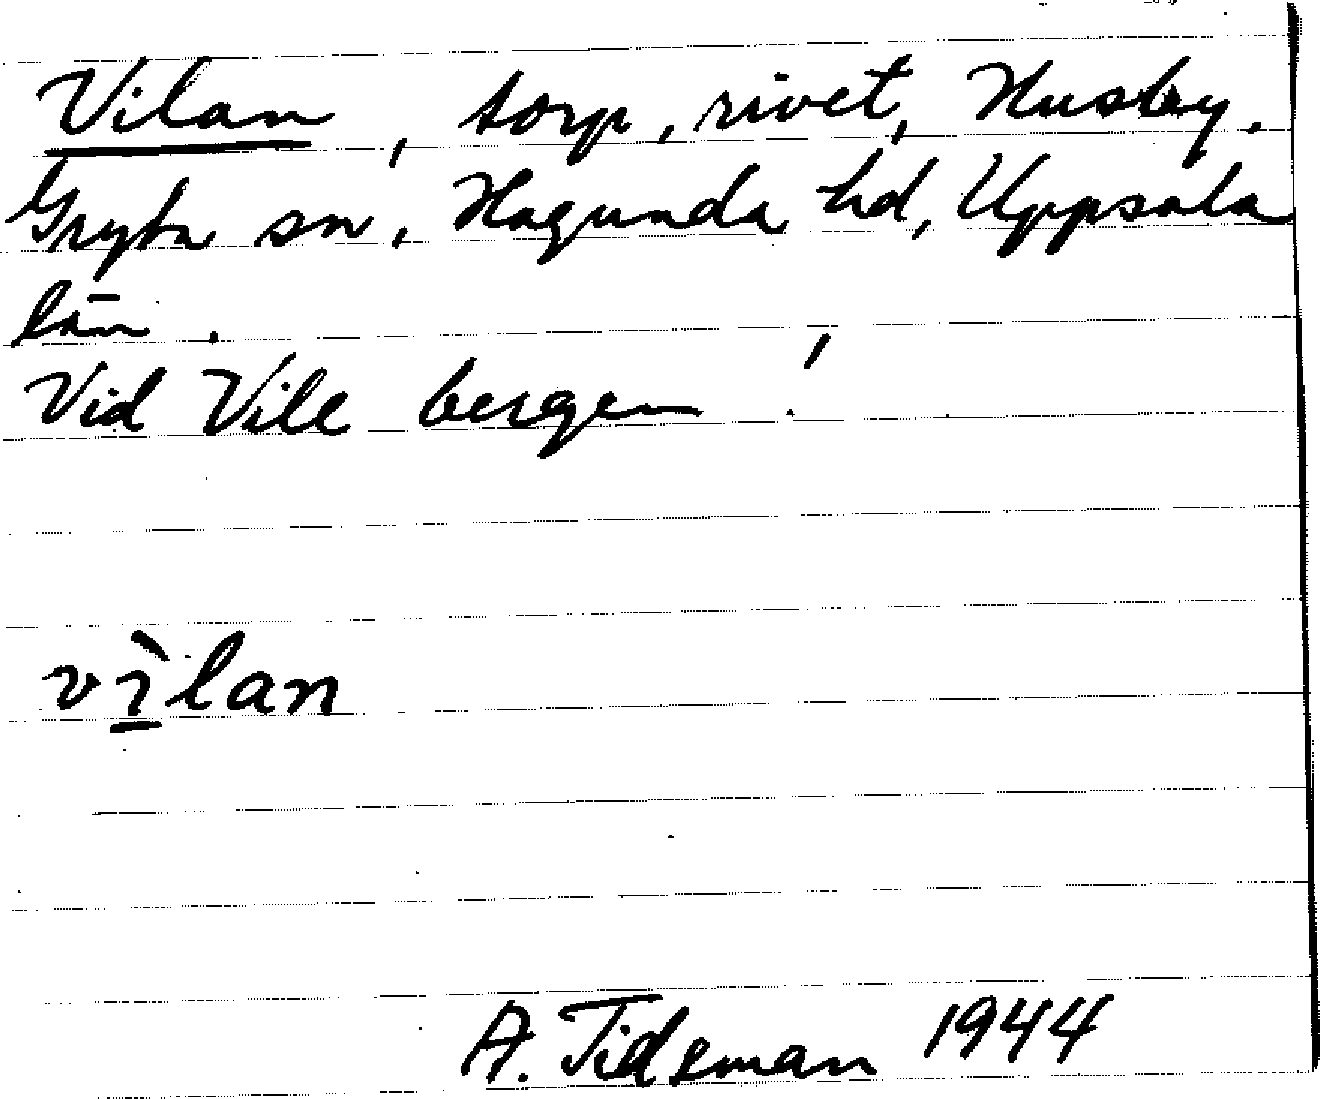 Vilan, torp, rivet, Husby,
Gryta sn, Hagunda hd, Uppsala
län.
Vid Vile bergen!
vìlan
A. Tidsman 1944